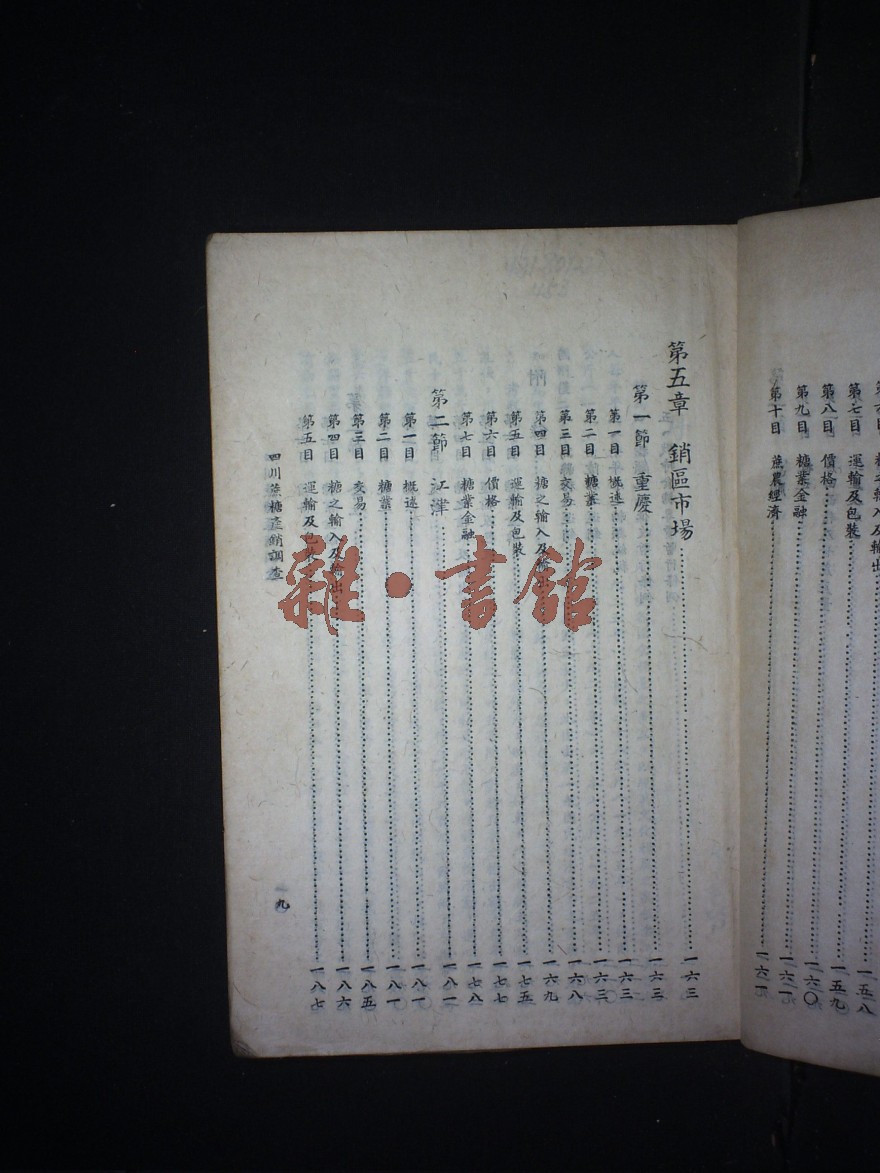 目 運輸及包裝……一五九
第八目 價格……一六〇
第九目 糖業金融……一六一
第十目 蔗農經濟……一六一
第五章 銷區市場……一六三
第一節 重慶……一六三
第一目 概述……一六三
第二目 糖業……一六三
第三目 交易……一六八
第四目 糖之輸入及輸出……一六九
第五目 運輸及包裝……一七五
第六目 價格……一七七
第七目 糖業金融……一七八
第二節 江津……一八一
第一目 概述……一八一
第二目 糖業……一八一
第三目 交易……一八五
第四目 糖之輸入及輸出……一八六
第五目 運輸及包裝……一八七
四川蔗糖產銷調查
九
雜·書館